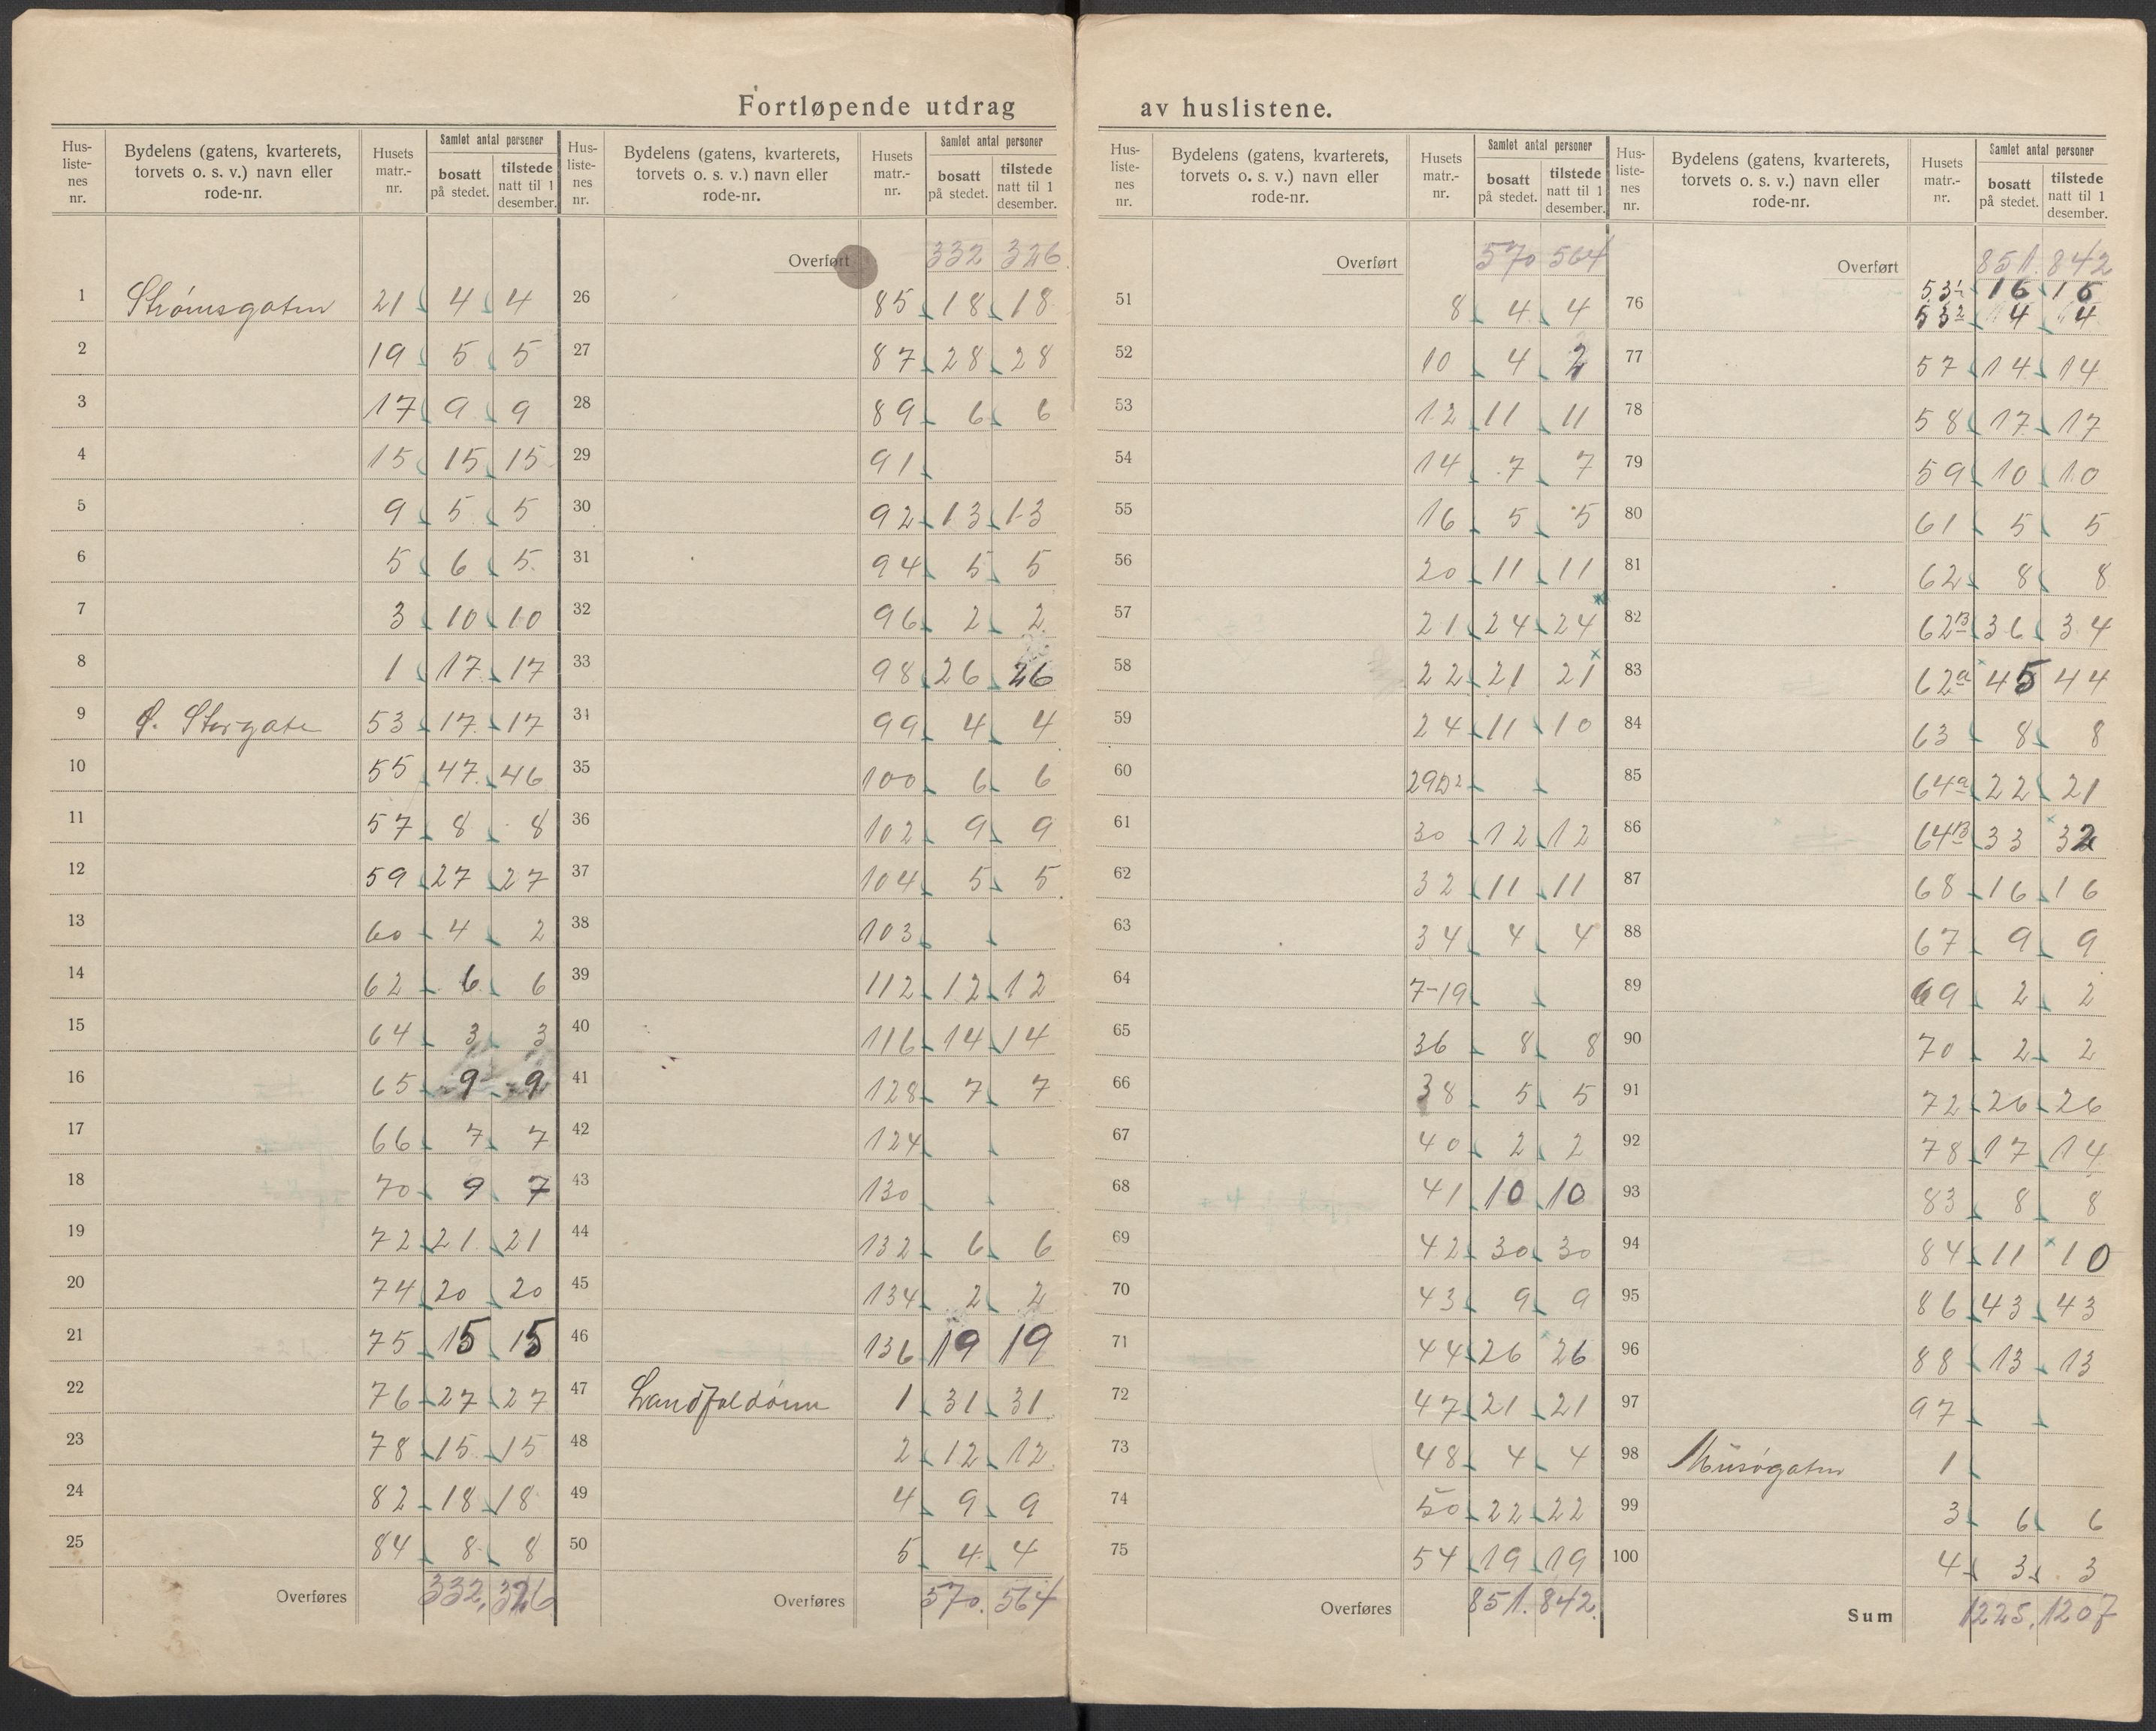 Fortløpende utdrag av huslistene.
Hus-listenes nr. | Bydelens (gatens, kvarterets, torvets o. s. v.) navn eller rode-nr. | Husets matr.-nr. | Samlet antal personer | bosatt på stedet. | tilstede natt til 1 desember.
1 Strømsgaten 21 4 4
2 19 5 5
3 17 9 9
4 15 15 15
5 9 5 5
6 5 6 5
7 3 10 10
8 1 17 17
9 Ø. Storgate 53 17 17
10 55 47 46
11 57 8 8
12 59 27 27
13 60 4 2
14 62 6 6
15 64 3 3
16 65 9 9
17 66 7 7
18 70 9 7
19 72 21 21
20 74 20 20
21 75 15 15
22 76 27 27
23 78 15 15
24 82 18 18
25 84 8 8
Overføres 332. 326
Hus-listenes nr. | Bydelens (gatens, kvarterets, torvets o. s. v.) navn eller rode-nr. | Husets matr.-nr. | Samlet antal personer | bosatt på stedet. | tilstede natt til 1 desember.
Overført 332 326
26 85 18 18
27 87 28 28
28 89 6 6
29 91
30 92 13 13
31 94 5 5
32 96 2 2
33 98 26 26
34 99 4 4
35 100 6 6
36 102 9 9
37 104 5 5
38 103
39 112 12 12
40 116 14 14
41 128 7 7
42 124
43 130
44 132 6 6
45 134 2 2
46 136 19 19
47 Landfaldøen 1 31 31
48 2 12 12
49 4 9 9
50 5 4 4
Overføres 570. 564
Hus-listenes nr. | Bydelens (gatens, kvarterets, torvets o. s. v.) navn eller rode-nr. | Husets matr.-nr. | Samlet antal personer | bosatt på stedet. | tilstede natt til 1 desember.
Overført 570 564
51 8 4 4
52 10 4 2
53 12 11 11
54 14 7 7
55 16 5 5
56 20 11 11
57 21 24 24
58 22 21 21
59 24 11 10
60 29
61 30 12 12
62 32 11 11
63 34 4 4
64 7-19
65 36 8 8
66 38 5 5
67 40 2 2
68 41 10 10
69 42 30 30
70 43 9 9
71 44 26 26
72 47 21 21
73 48 4 4
74 50 22 22
75 54 19 19
Overføres 851. 842.
Hus-listenes nr. | Bydelens (gatens, kvarterets, torvets o. s. v.) navn eller rode-nr. | Husets matr.-nr. | Samlet antal personer | bosatt på stedet. | tilstede natt til 1 desember.
Overført 851. 842
76 53 1 16 16
53 2 4 4
77 57 14 14
78 58 17 17
79 59 10 10
80 61 5 5
81 62 8 8
82 62B 36 34
83 62a 45 44
84 63 8 8
85 64a 22 21
86 64B 33 32
87 68 16 16
88 67 9 9
89 69 2 2
90 70 2 2
91 72 26 26
92 78 17 14
93 83 8 8
94 84 11 10
95 86 43 43
96 88 13 13
97 97
98 Musøgaten 1
99 3 6 6
100 4 3 3
Sum 1225. 1207